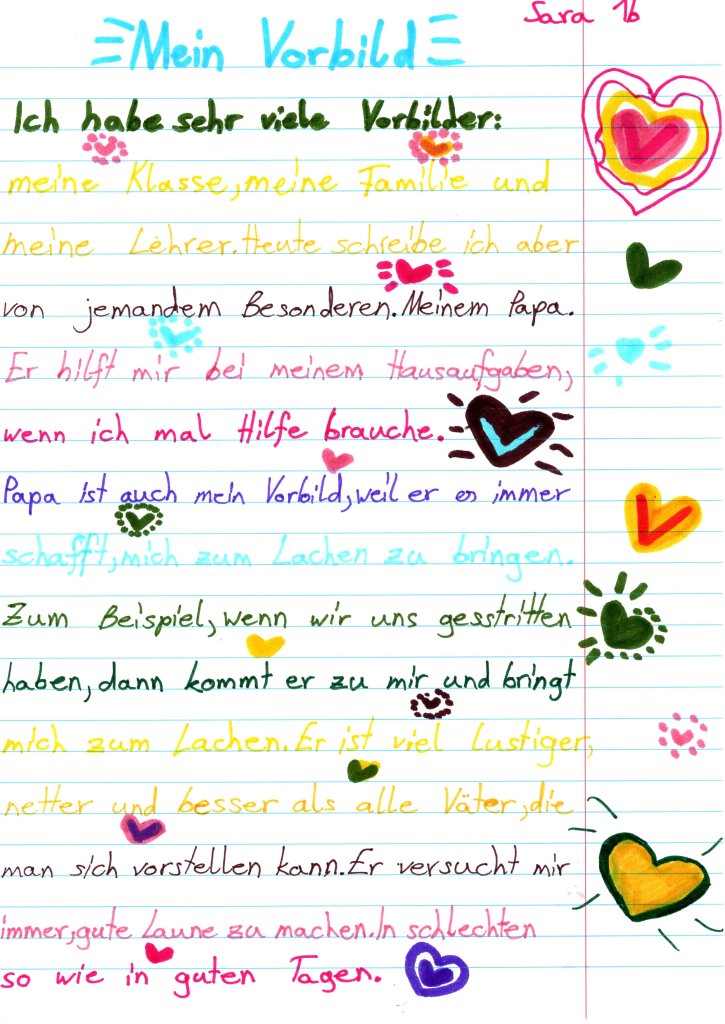 Sara 1b
Mein Vorbild
Ich habe sehr viele Vorbilder:
meine Klasse, meine Familie und
meine Lehrer. Heute schreibe ich aber
von jemandem Besonderen. Meinem Papa.
Er hilft mir bei meinem Hausaufgaben,
wenn ich mal Hilfe brauche.
Papa ist auch mein Vorbild, weil er es immer
schafft, mich zum Lachen zu bringen.
Zum Beispiel, wenn wir uns gesstritten
haben, dann kommt er zu mir und bringt
mich zum Lachen. Er ist viel Lustiger,
netter und besser als alle Väter, die
man sich vorstellen kann. Er versucht mir
immer, gute Laune zu machen. In schlechten
so wie in guten Tagen.